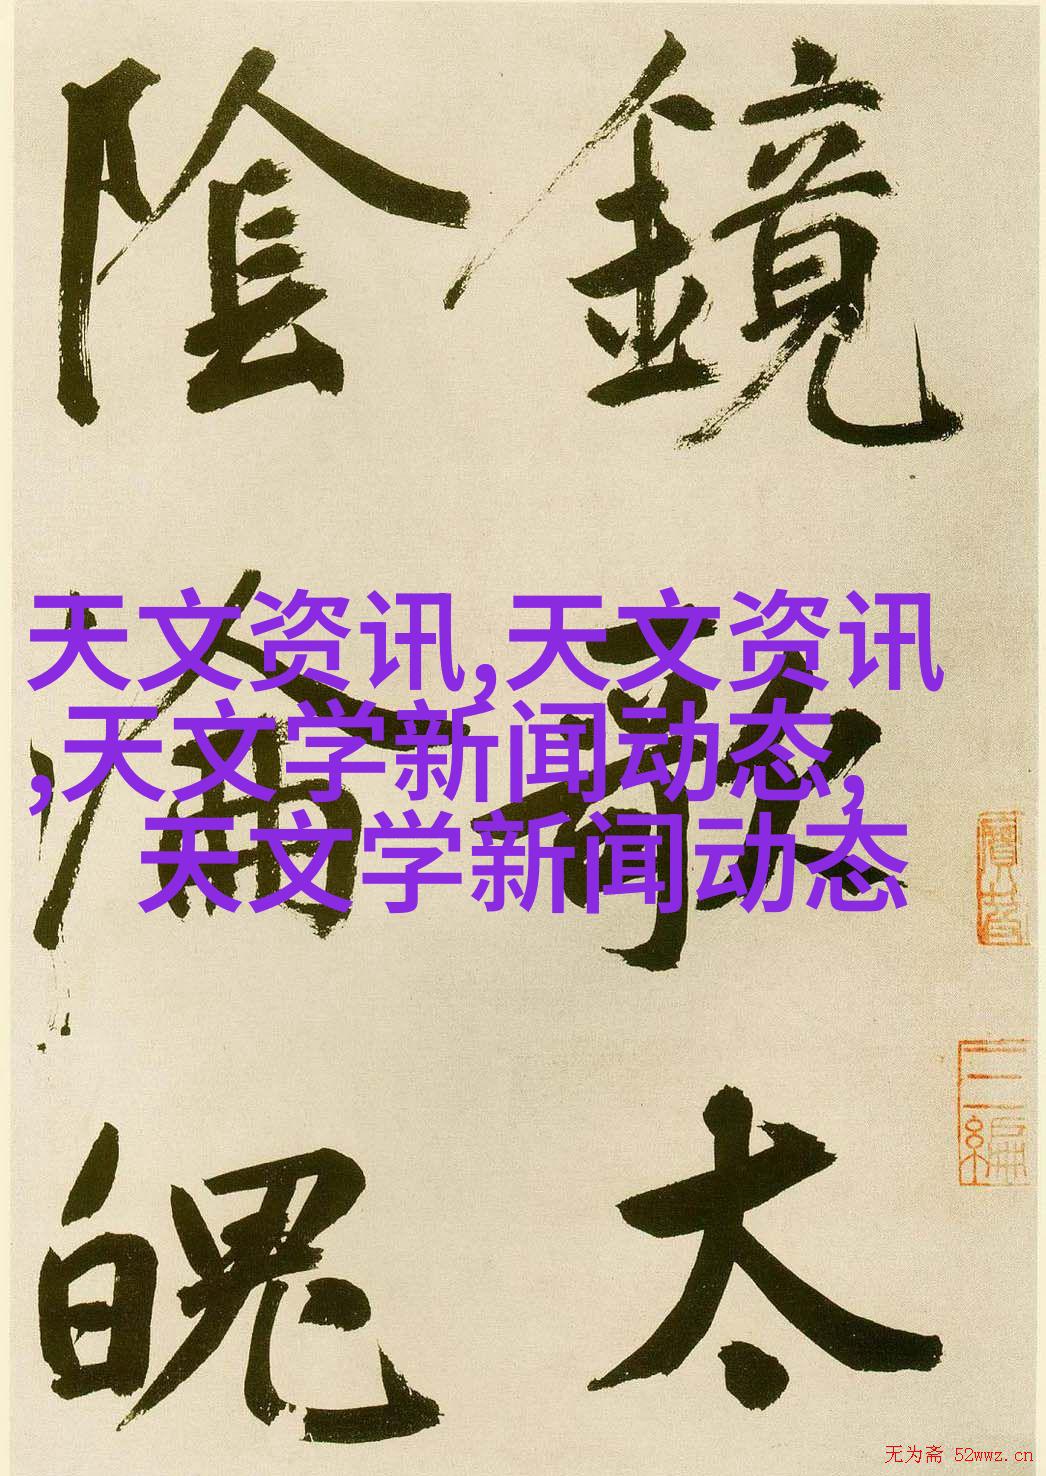 鏡
歌
太
隂
淪
魄
天文资讯,天文资讯
,天文学新闻动态,
天文学新闻动态
三編
无为斋 52wwz.cn